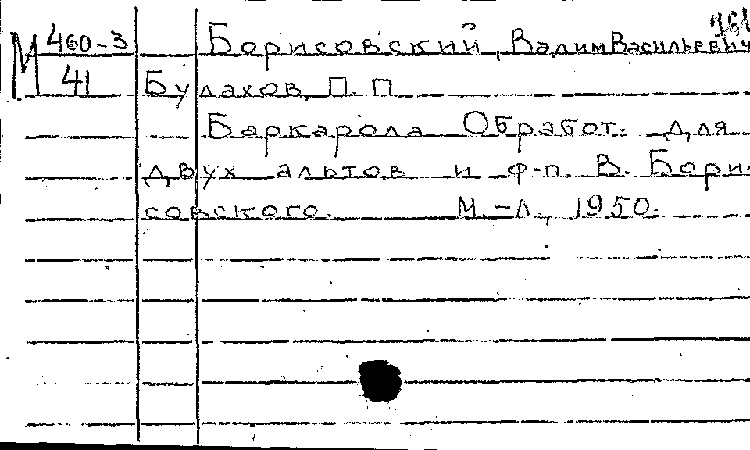 М 460-3 Борисовский, Вадим Васильевич
41 Булахов, П. П
Баркарола Обработ. для
двух альтов и ф-п. В. Бори-
совского. М.-Л., 1950.